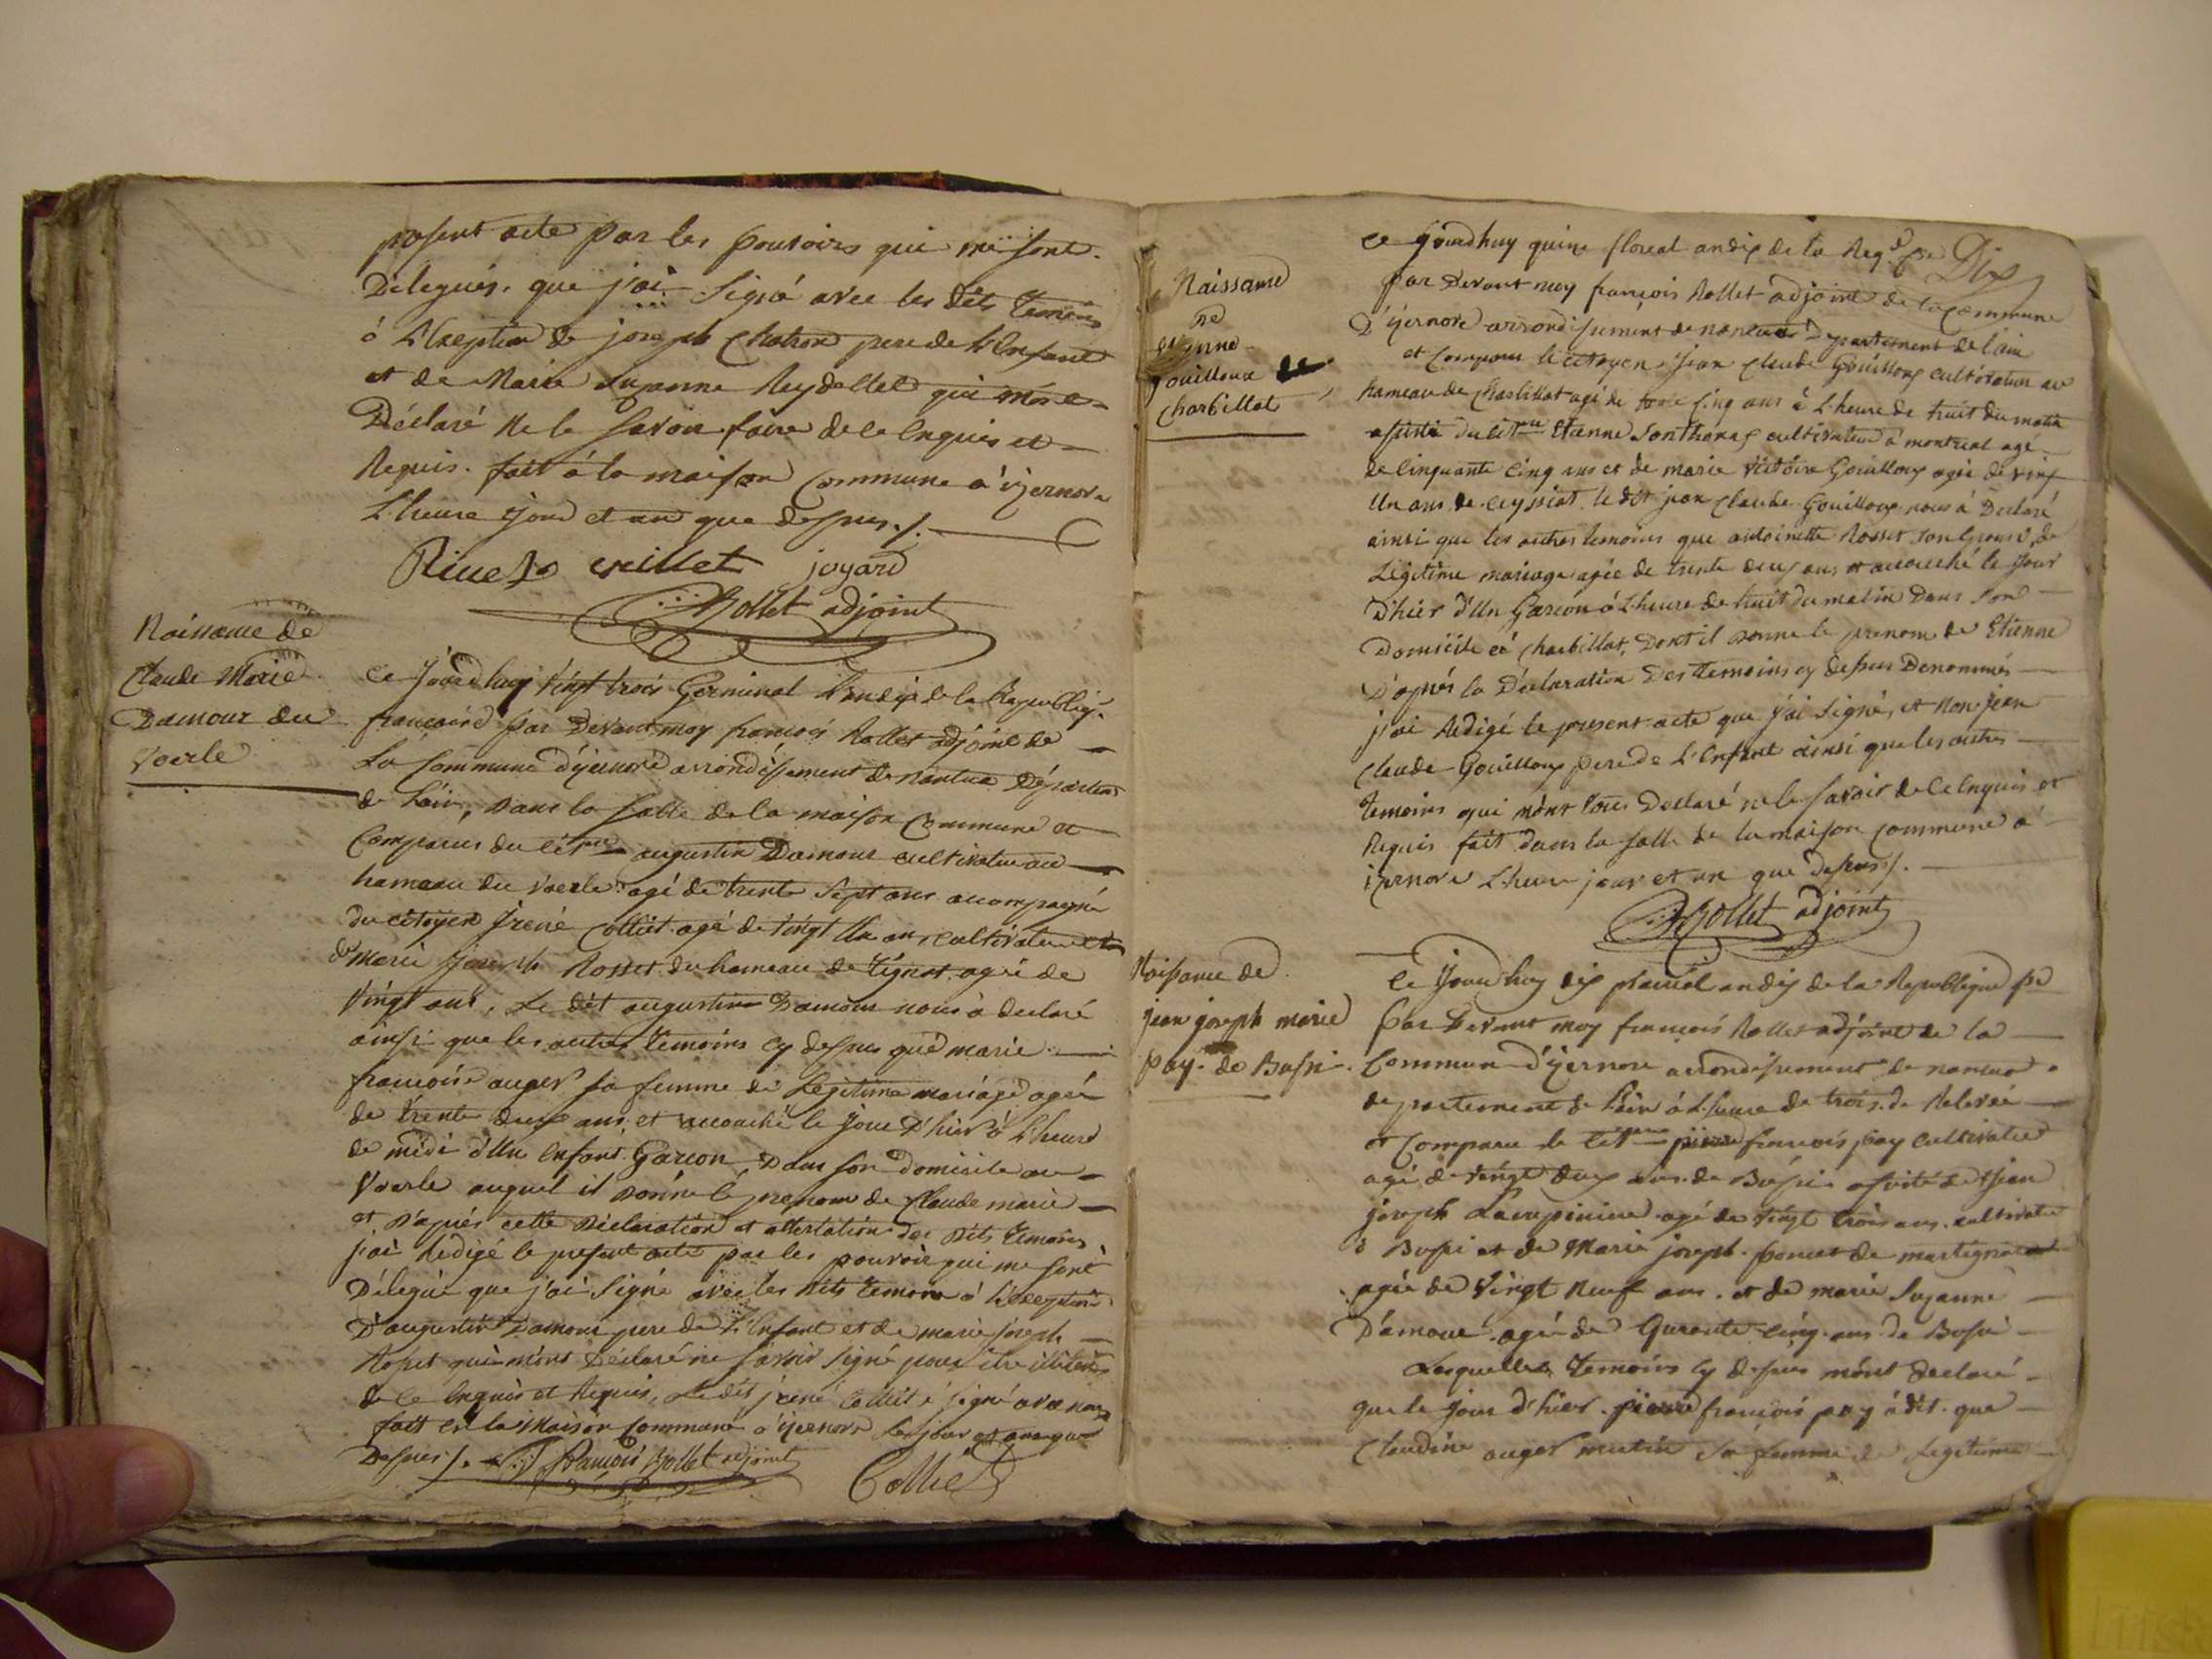 present acte par les pouvoirs qui me sont
Delegués. que j'ai Signé avec les dits temoins
à L'Exeption de joseph Chatron pere de L'Enfant
et de Marie Suzanne Reydellet qui mont
Déclaré Ne le Savoir faire de ce Enquis et
Requis. fait à la maison Commune a yzernore
L'heure jour et an que dessus ./.
joyard
Rollet adjoint
Naissance de
Claude Marie
Damour du
Voerle
Ce Jourd'huy Vingt trois Germinal L'an dix de la Republiq.
francaise par Devant moy francois Rollet adjoint de
La Commune d'yzernore arrondissement de nantua Départem
de L'ain, dans la salle de la maison Commune et
Comparus du cit augustin Damour cultivateur au
hameau du Voerle agé de trente Sept ans accompagné
du citoyen Irené Colliet agé de vingt Un an, cultivateur et
de Marie Joseph Rosset du hameau de Tignat agée de
Vingt ans, Le dit augustin Damour nous à declaré
ainsi que les autres temoins cy dessus que marie
francoise auger sa femme de Legitime mariage agée
de trente deux ans, et accouché le jour D'hier à L'heure
de midi d'Un Enfant Garcon, Dans son Domicile au
Voerle auquel il donne le prenom de Claude marie
et D'après cette Déclaration et attestation des dits temoins
j'ai Redigé le present acte par les pouvoir qui me sont
Délegué que j'ai Signé avec les dits temoins à L'exeption
D'augustin Damour pere de L'Enfant et de marie joseph
Rosset qui m'ont Déclaré ne savoir signé pour être illiterés
de ce Enquis et Requis, Le dit jrené Colliet à signé avec nous
fait en la Maison Commune a yzernore Les jour et an que
Dessus ./. François Rollet adjoint
Colliet
Dix
Naissance
de
Etienne
Gouilloux de
Charbillat
ce jourd'huy quinze floreal an dix de la Rep.
par Devant moy françois Rollet adjoint de la Commune
D'yzernore arrondissement de nantua Departement de l'ain
et Comparus le citoyen Jean Claude Gouilloux cultivateur au
hameau de Charbillat agé de trente cinq ans à L'heure de huit du matin
assisté du cit Etienne Jonthanas cultivateur à montreal agé
de Cinquante Cinq ans et de marie Victoire Gouilloux agée de vingt
Un ans de ceyssiat le dit jean Claude Gouilloux nous à Declaré
ainsi que les autres temoins que antoinette Rosset son Epouse de
Légitime mariage agée de trente deux ans et accouché le Jour
D'hier d'Un Garcon à L'heure de huit du matin Dans Son
Domicile à Charbillat, Dont il donne le prenom de Etienne
D'après la Déclaration Des temoins cy dessus Denommés
j'ai Redigé le present acte que j'ai Signé, et Non jean
Claude Gouilloux pere de L'Enfant ainsi que les autres
temoins qui m'ont tous Declaré ne le savoir de ce Enquis et
Requis fait dans la salle de la maison commune à
izernore L'heure jour et an que dessus ./.
Rollet adjoint
Naissance de
jean joseph marie
pay de Bussi
Ce Jourd'huy dix prairial an dix de la Republique fse
par Devant moy francois Rollet adjoint de la
Commune D'yzernore arrondissement de nantua
departement de L'ain à L'heure de trois de Relevée
et Comparu le cit pierre francois pay Cultivateur
agé de vingt deux ans de Bussi assisté de Jean
joseph Lacupiniere agé de vingt trois ans cultivateur
à Bussi et de Marie joseph poncet de martignat
agée de Vingt Neuf ans. et de marie Suzanne
D'amour agée de Quarante cinq ans de Bussi
Lesquelles temoins cy dessus m'ont declaré
que le jour d'hier pierre francois pay à dit que
Claudine auger sa femme de Legitime